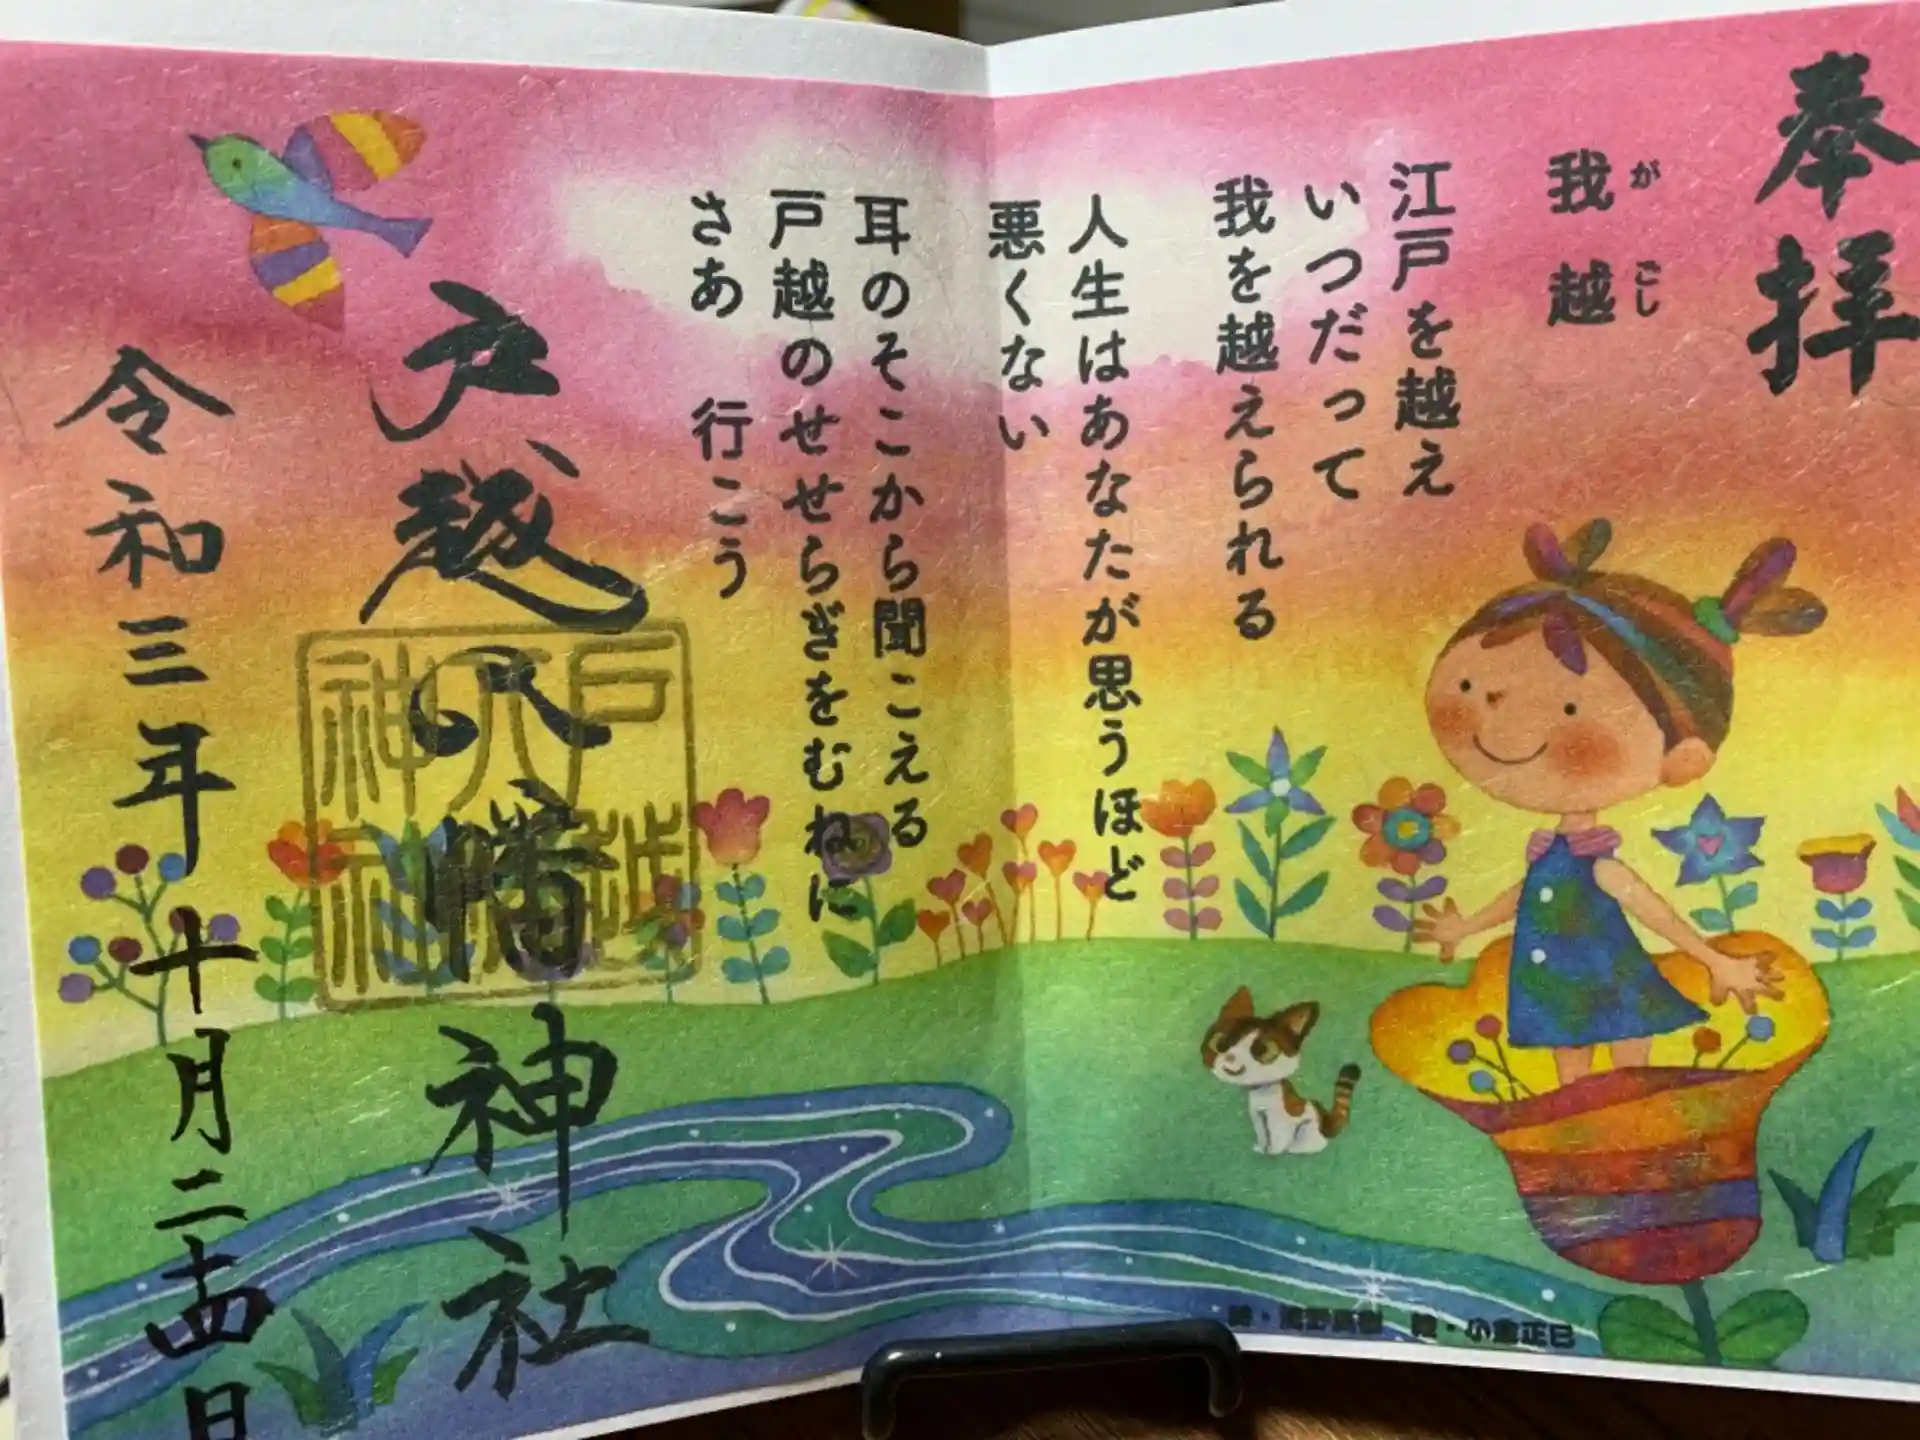 奉拝
我越
がごし
江戸を越え
いつだって
我を越えられる
人生はあなたが思うほど
悪くない
耳のそこから聞こえる
戸越のせせらぎをむねに
さあ 行こう
戸越八幡神社
戸越
八幡
神社
令和三年十月二十四日
小倉正巳